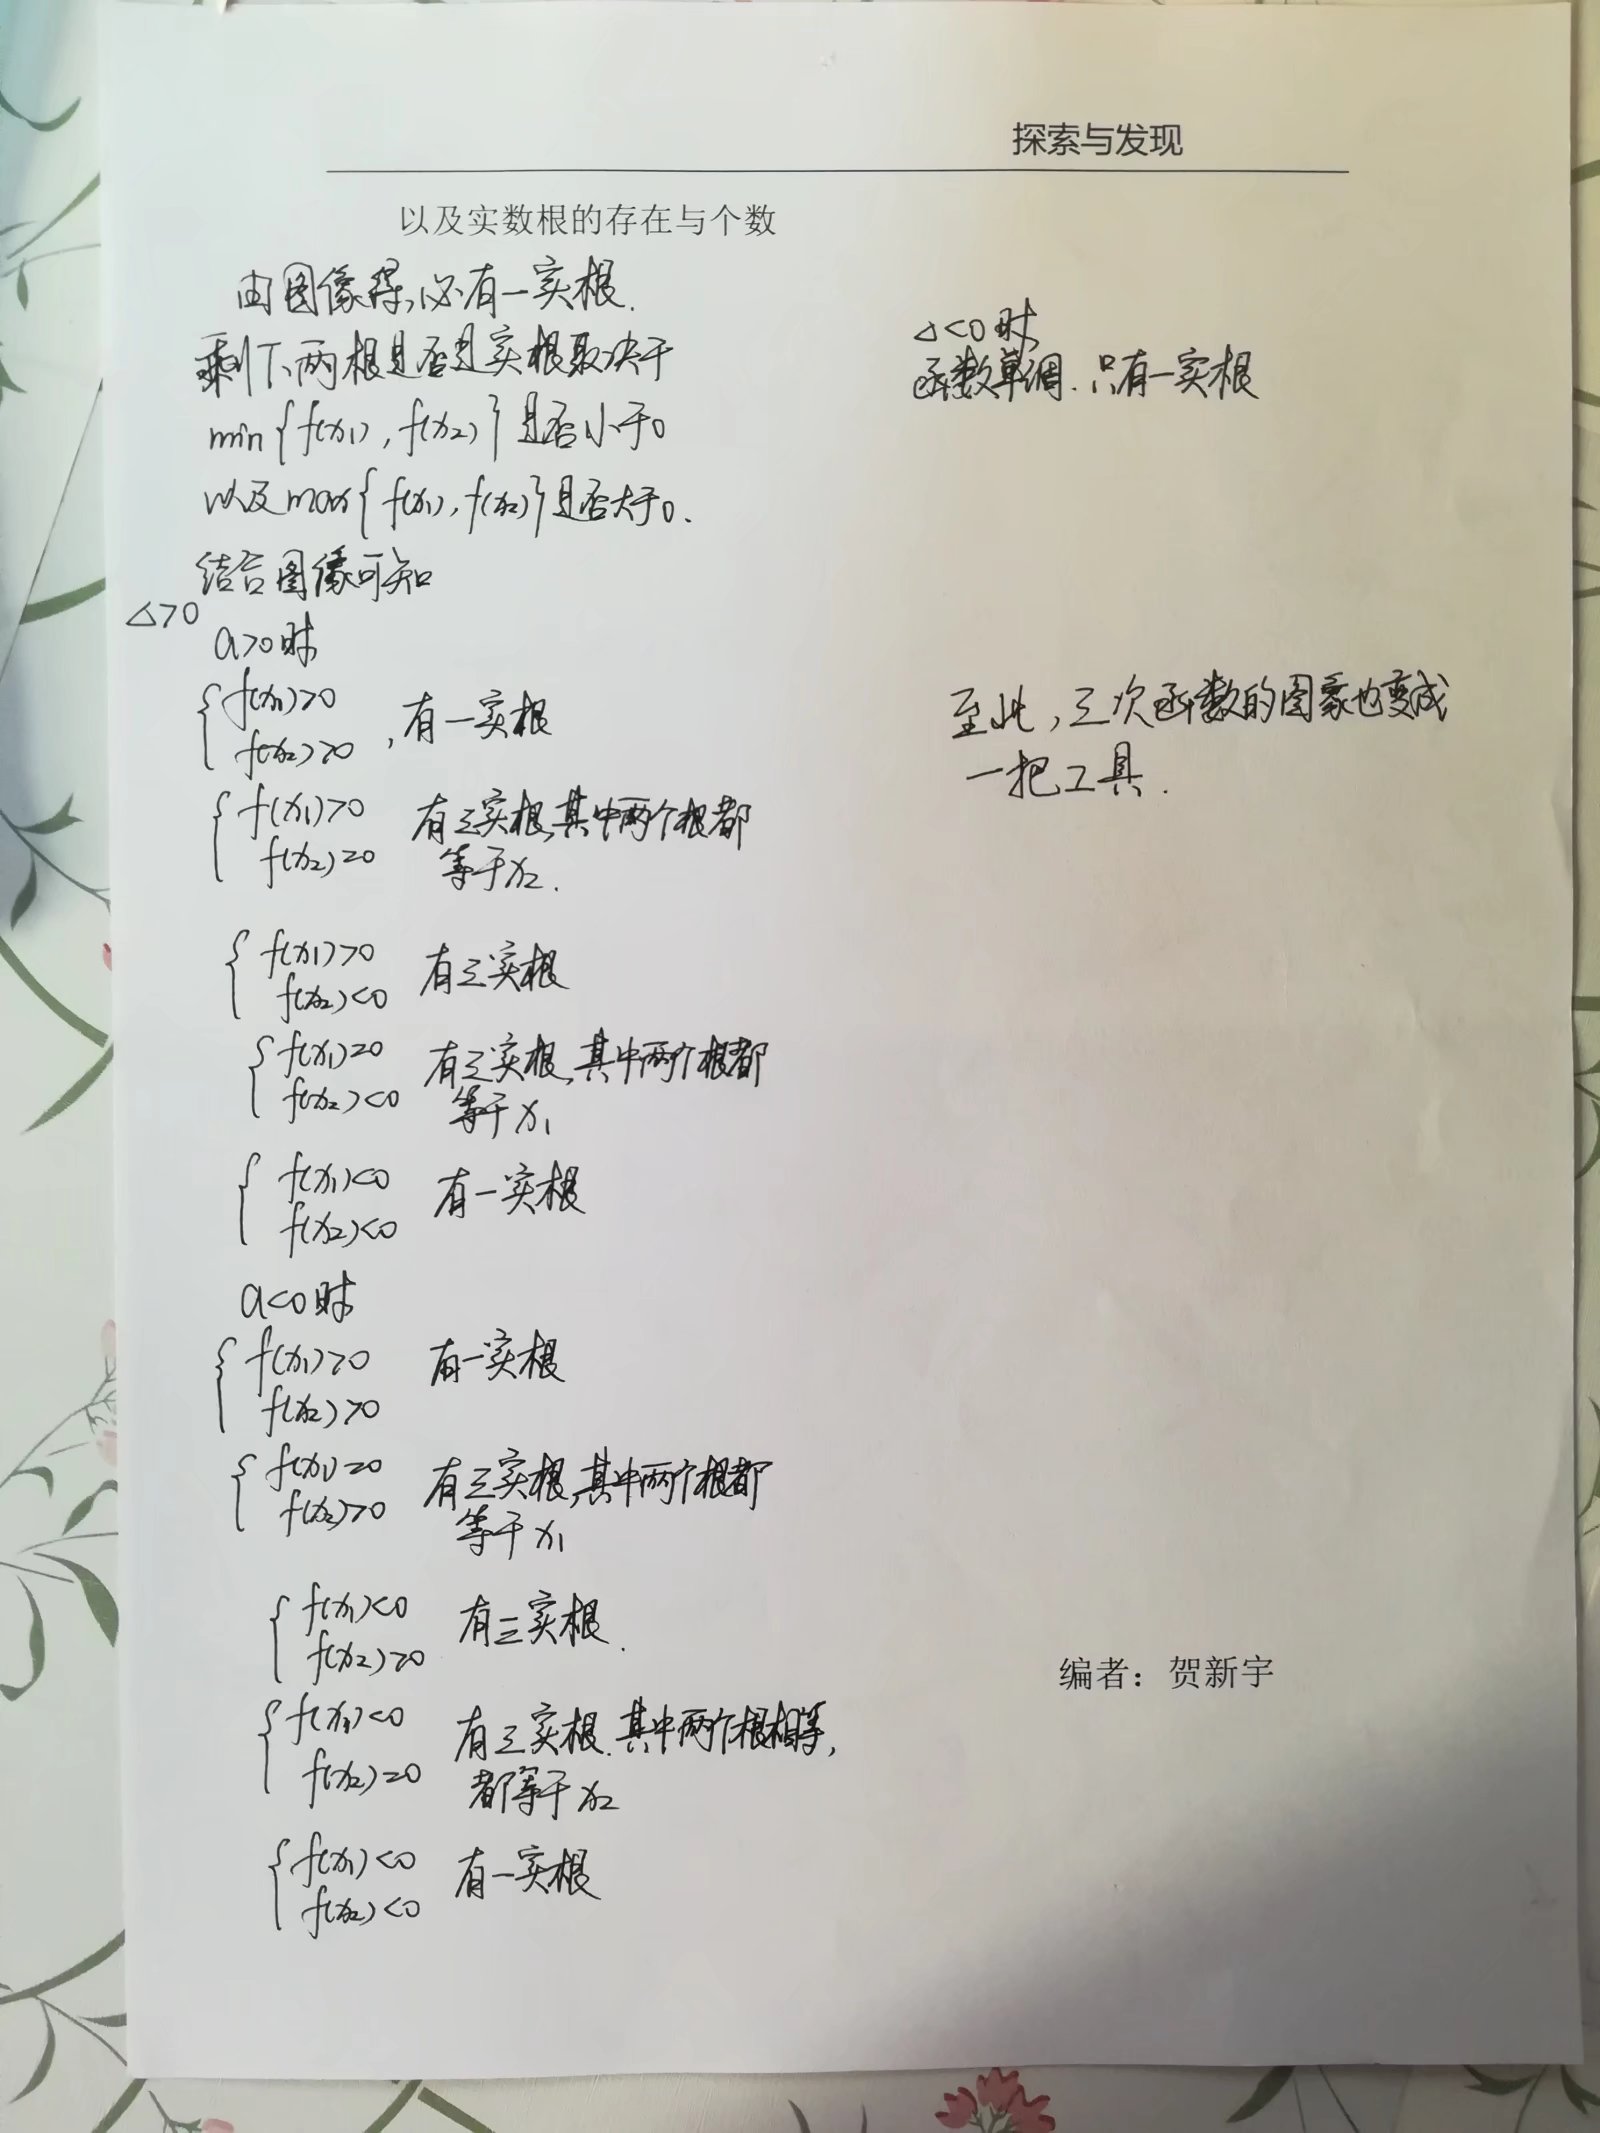 探索与发现
以及实数根的存在与个数
由图像得,必有一实根.
剩下两根是否是实根取决于
min{f(x₁),f(x₂)}是否小于0
以及max{f(x₁),f(x₂)}是否大于0.
结合图像可知
△>0
a>0时
{f(x₁)>0
f(x₂)>0 ,有一实根
{f(x₁)>0 有三实根,其中两个根都
f(x₂)=0 等于x₂.
{f(x₁)>0 有三实根
f(x₂)<0
{f(x₁)=0 有三实根,其中两个根都
f(x₂)<0 等于x₁
{f(x₁)<0 有一实根
f(x₂)<0
a<0时
{f(x₁)>0 有一实根
f(x₂)>0
{f(x₁)=0 有三实根,其中两个根都
f(x₂)>0 等于x₁
{f(x₁)<0 有三实根.
f(x₂)>0
{f(x₁)<0 有三实根.其中两个根相等,
f(x₂)=0 都等于x₂
{f(x₁)<0 有一实根
f(x₂)<0
△<0时
函数单调.只有一实根
至此,三次函数的图象也变成
一把工具.
编者：贺新宇